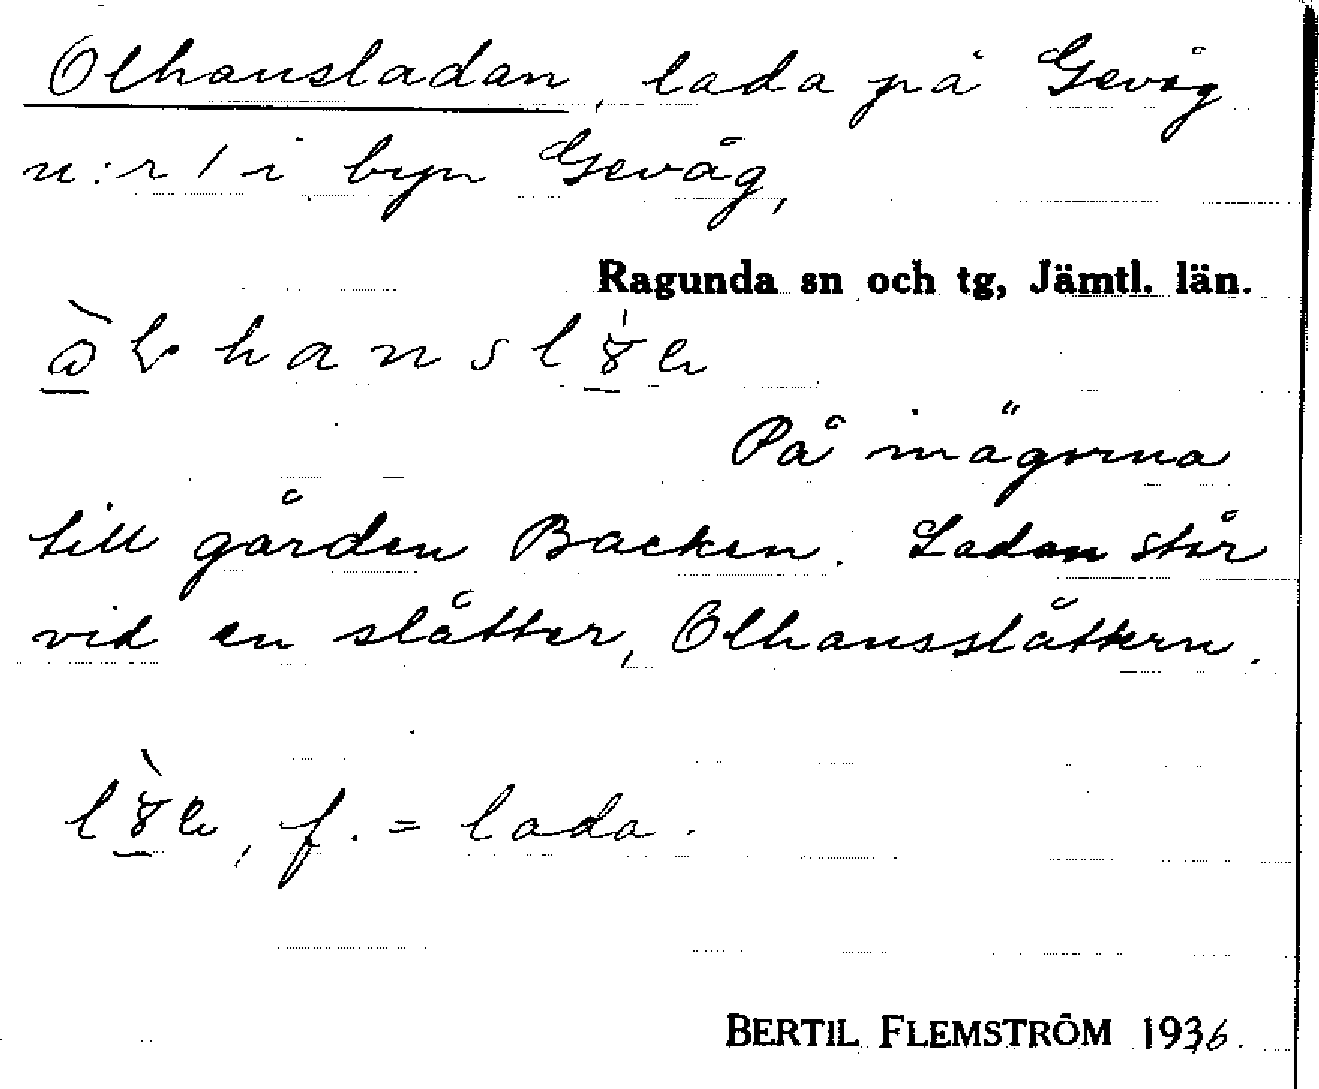 Olhansladan, lada på Gevåg
n:r 1 i byn Gevåg,
Ragunda sn och tg, Jämtl. län.
På inägorna
till gården Backen. Ladan står
vid en slåtter, Olhansslåttern.
f. = lada.
BERTIL FLEMSTRÖM 1936.